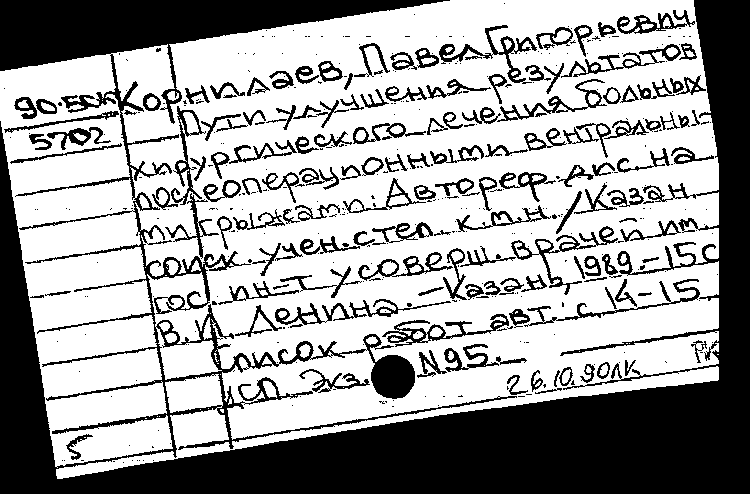 90-5СК Корнилаев, Павел Григорьевич
5702 Пути улучшения результатов
хирургического лечения больных
послеоперационными вентральны-
ми грыжами: Автореф. дис. на
соиск. учен. степ. к.м.н. / Казан.
гос. ин-т усоверш. врачей им.
В.И. Ленина. - Казань, 1989. - 15 с
Список работ авт.: с. 14-15
ДСП. Экз. N95.
26.10.90ЛК РК
5